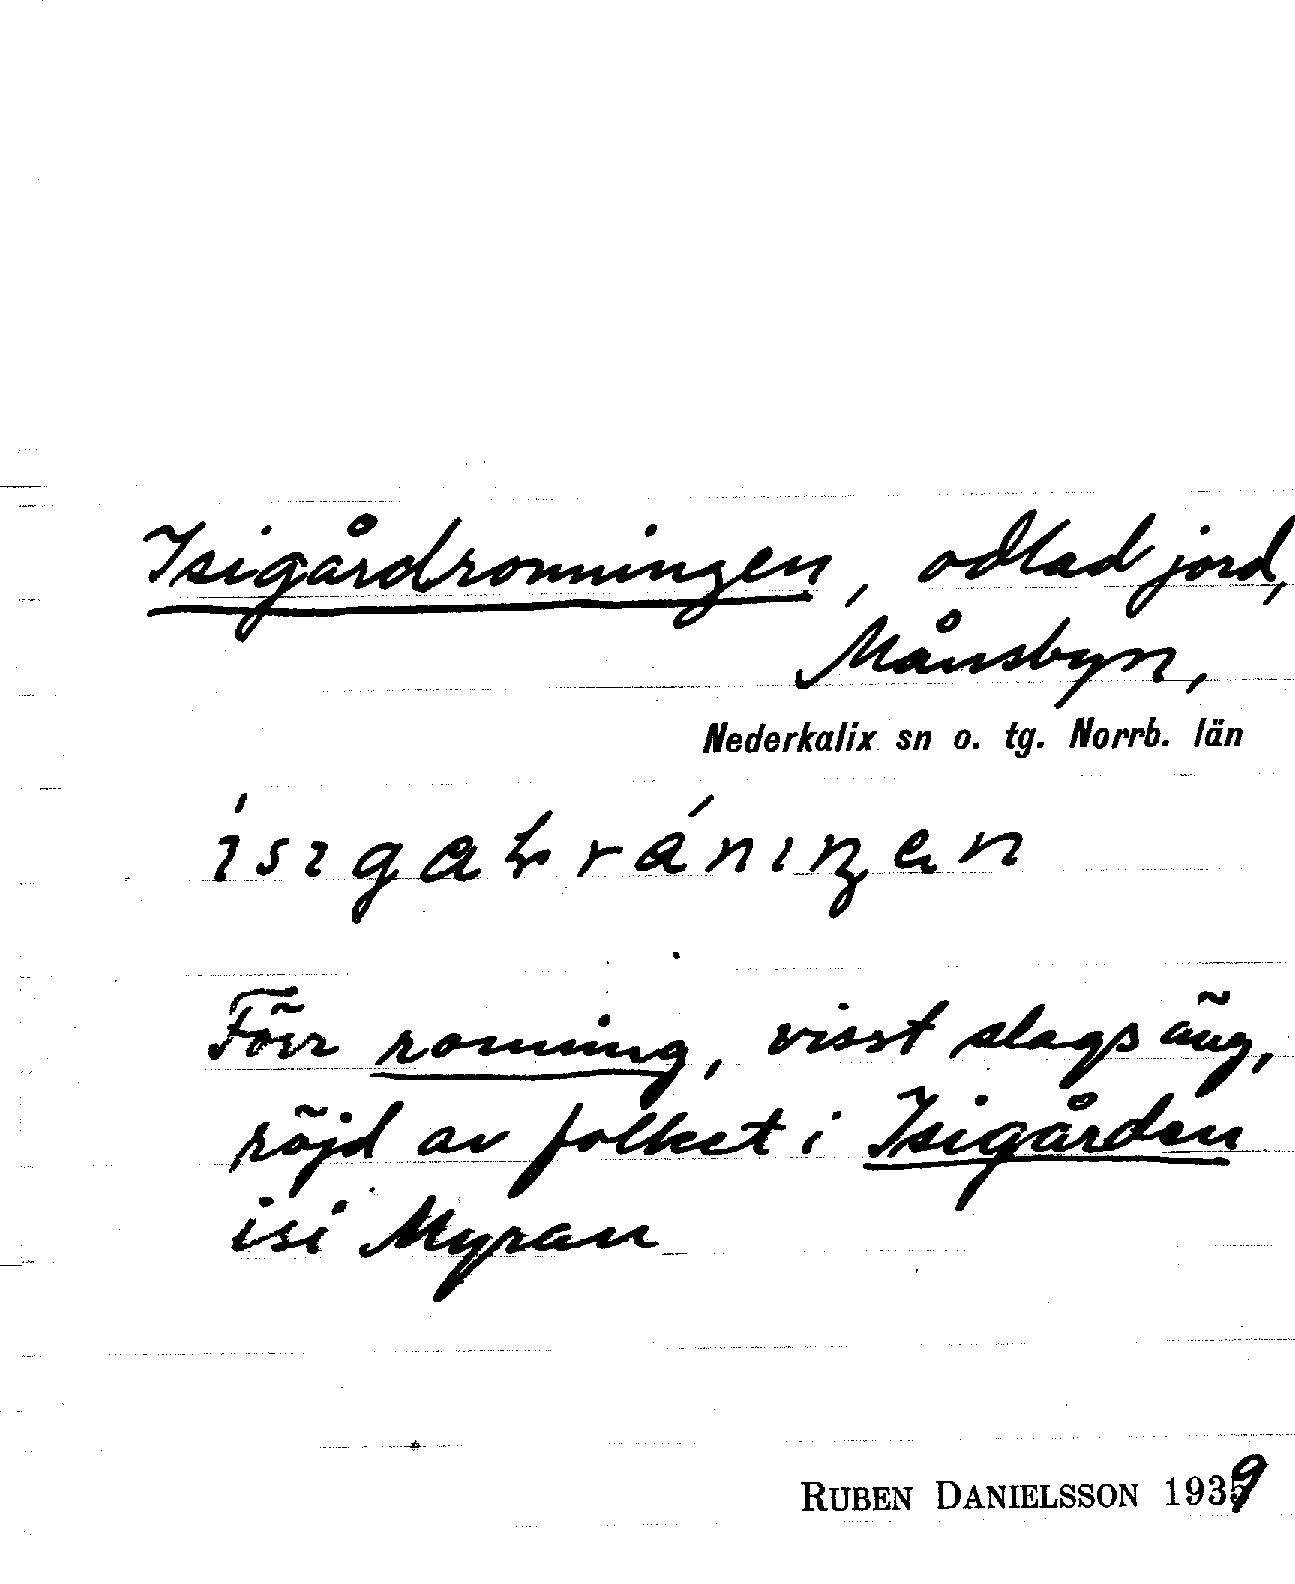 Isigårdronningen, odlad jord,
Månsbyn,
Nederkalix sn o. tg. Norrb. län
Förr ronning, visst slags äng,
röjd av folket i Isigården
isi Myran
RUBEN DANIELSSON 1939